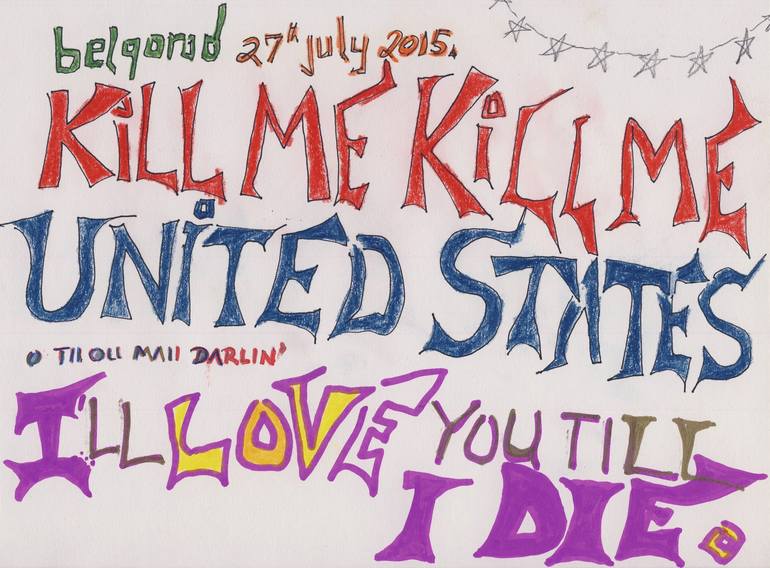 belgorod 27th july 2015.
KiLL ME KiLL ME
UNiTED STATES
DARLIN'
I'LL LOVE YOU TILL
I DIE.